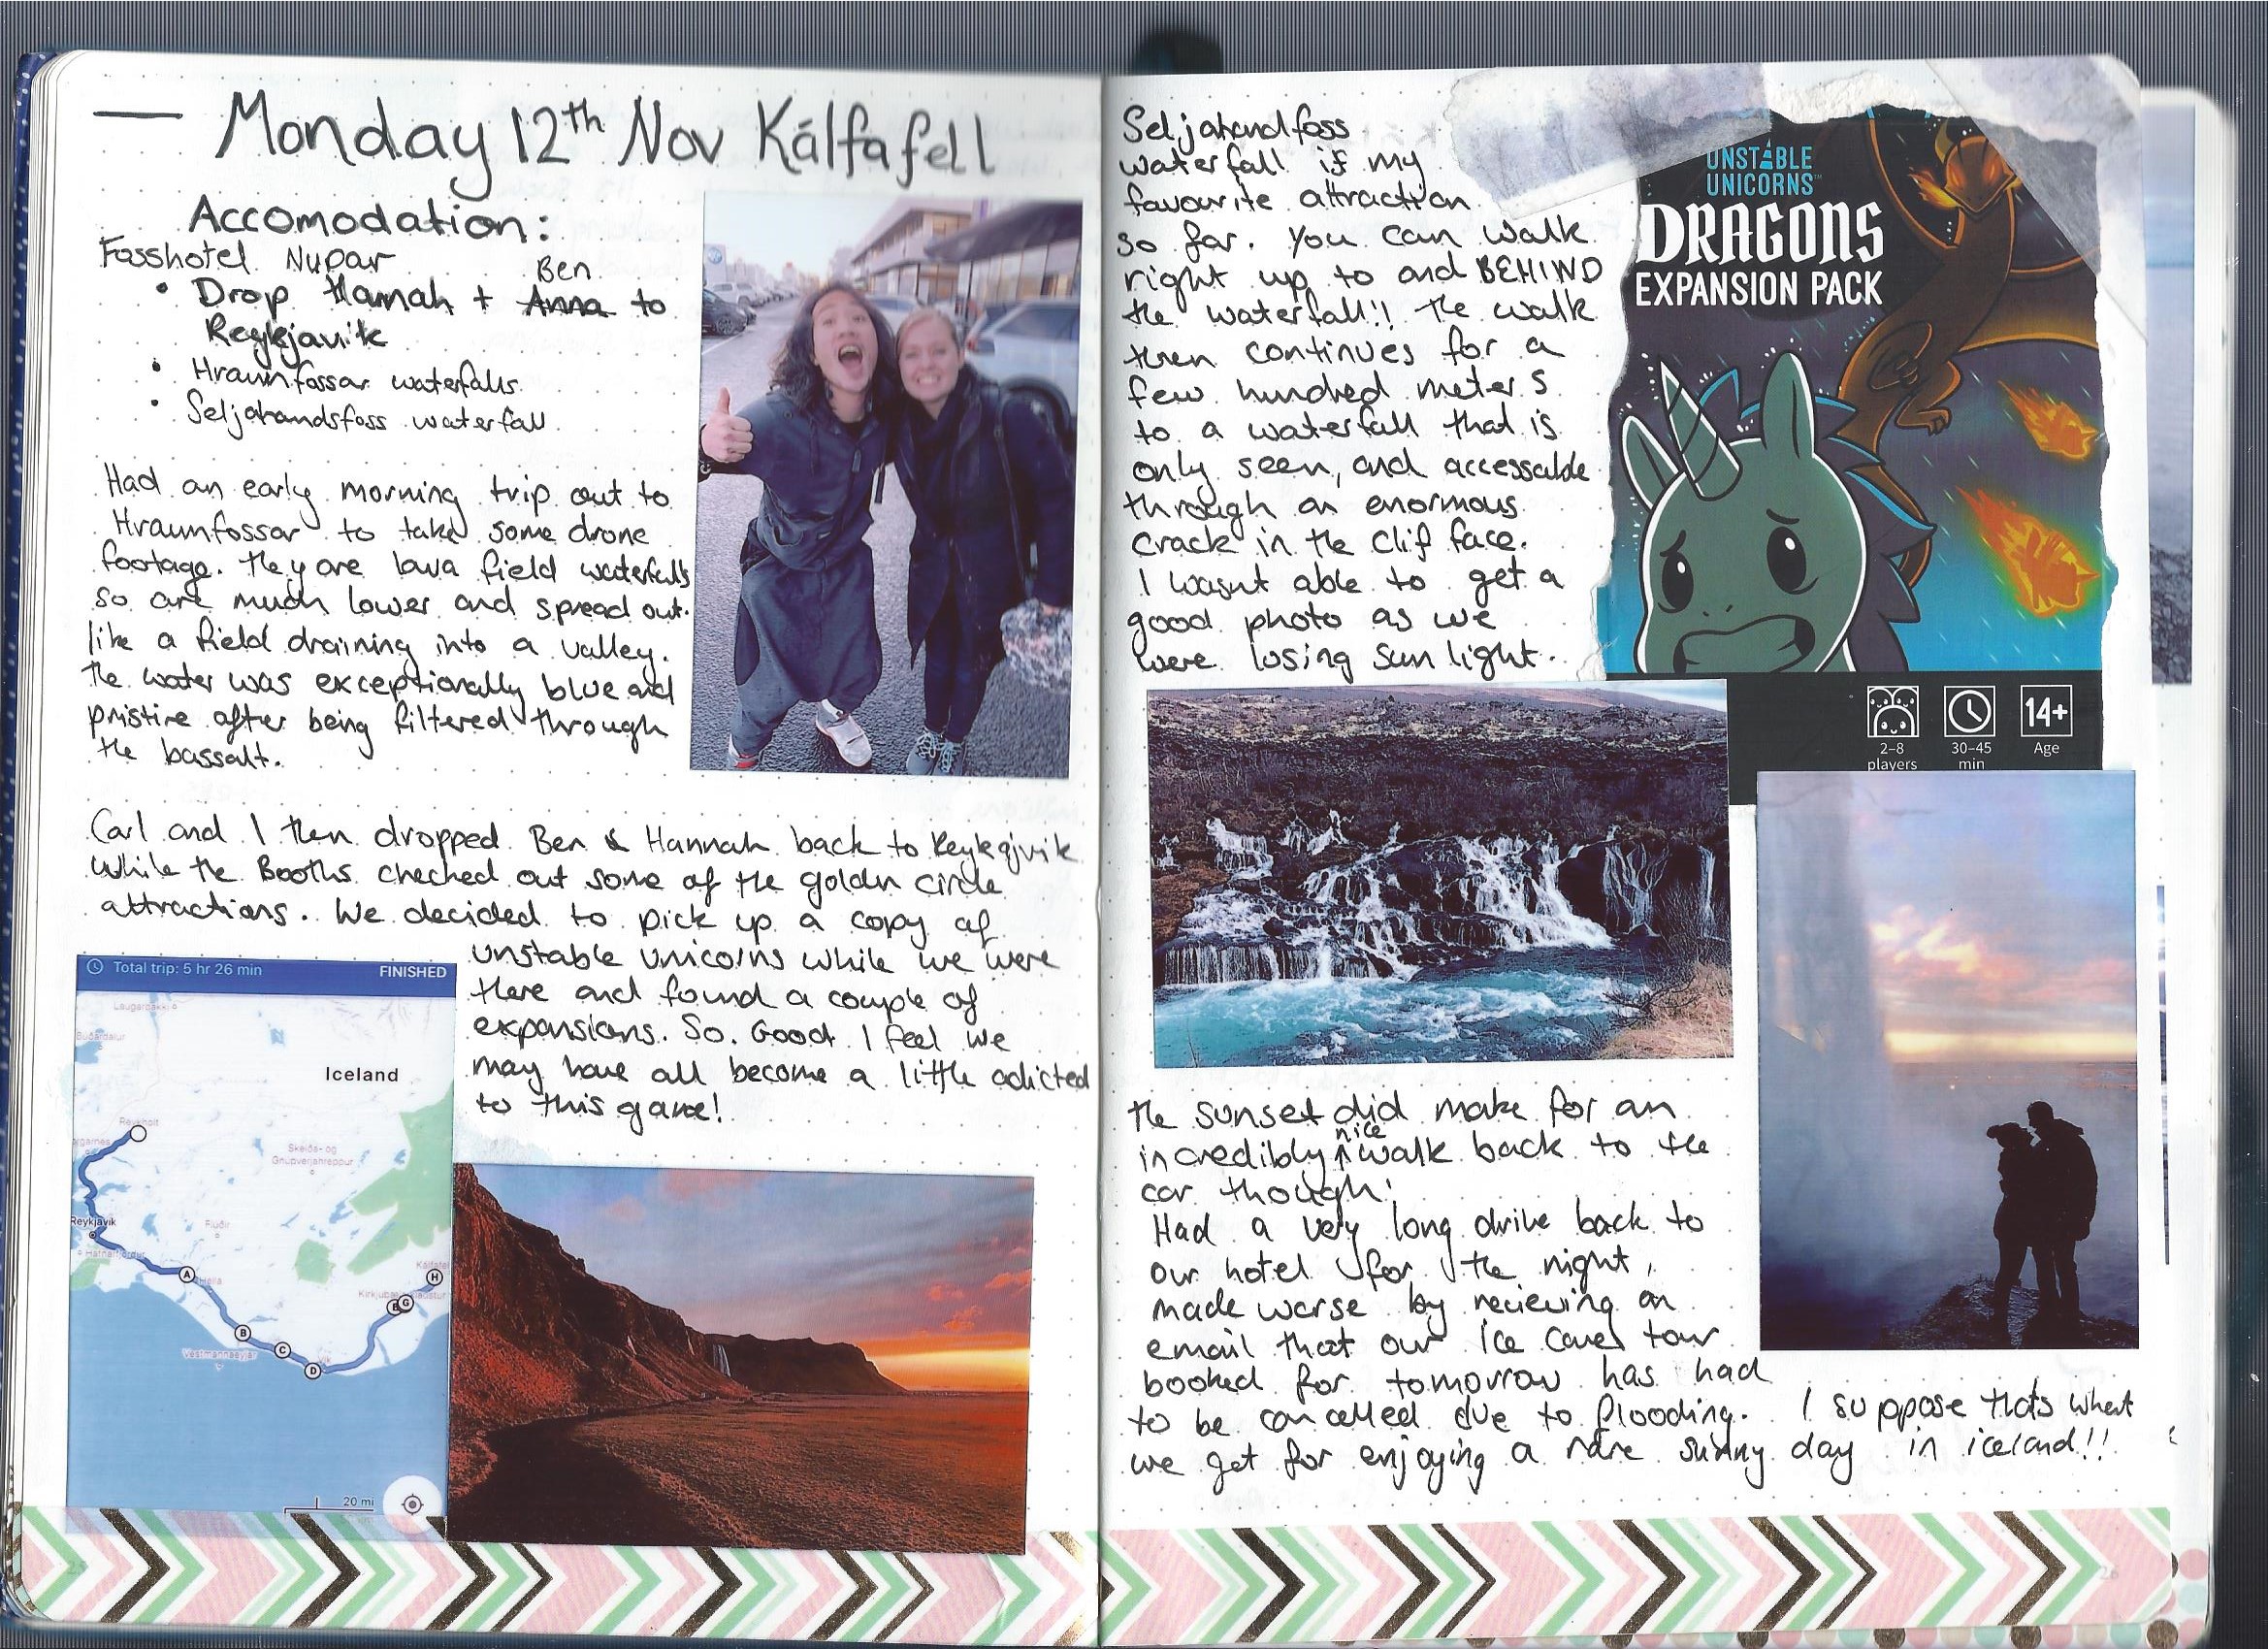 Monday 12th Nov Kálfafell
Accomodation:
Fosshotel Nupar
Ben
• Drop Hannah + Anna to
Reykjavik
• Hraunfossar waterfalls
• Seljahandsfoss waterfall
Had an early morning trip out to
Hraunfossar to take some drone
footage. they are lava field waterfalls
so are much lower and spread out.
like a field draining into a valley.
the water was exceptionally blue and
pristine after being filtered through
the bassalt.
Carl and I then dropped Ben & Hannah back to
while the Booths checked out some of the goldn circle
attractions. We decided to pick up a copy of
unstable unicorns while we were
there and found a couple of
expansions. So. Good. I feel we
may have all become a little adicted
to this game!
Total trip: 5 hr 26 min FINISHED
Laugarbakki
Búðardalur
Iceland
Reykholt
Skeiða- og
Gnúpverjahreppur
Reykjavík
Flúðir
Hafnarfjörður
A
Hella
H
G
B
Vestmannaeyjar
C
Vik
D
20 mi
25
Seljahandfoss
waterfall is my
favourite attraction
so far. You can walk
right up to and BEHIND
the waterfall!! the walk
then continues for a
few hundred meters
to a waterfall that is
only seen, and accessable
through an enormous
crack in the clif face.
I wasnt able to get a
good photo as we
were losing sun light.
UNSTABLE
UNICORNS™
DRAGONS
EXPANSION PACK
14+
2-8 30-45 Age
players min
the sunset did make for an
nice
incredibly ^ walk back to the
car though!
Had a very long drive back to
our hotel for the night,
made worse by recieving an
email that our ice caves tour
booked for tomorrow has had
to be cancelled due to flooding. I suppose thats what
we get for enjoying a rare sunny day in iceland!!
26